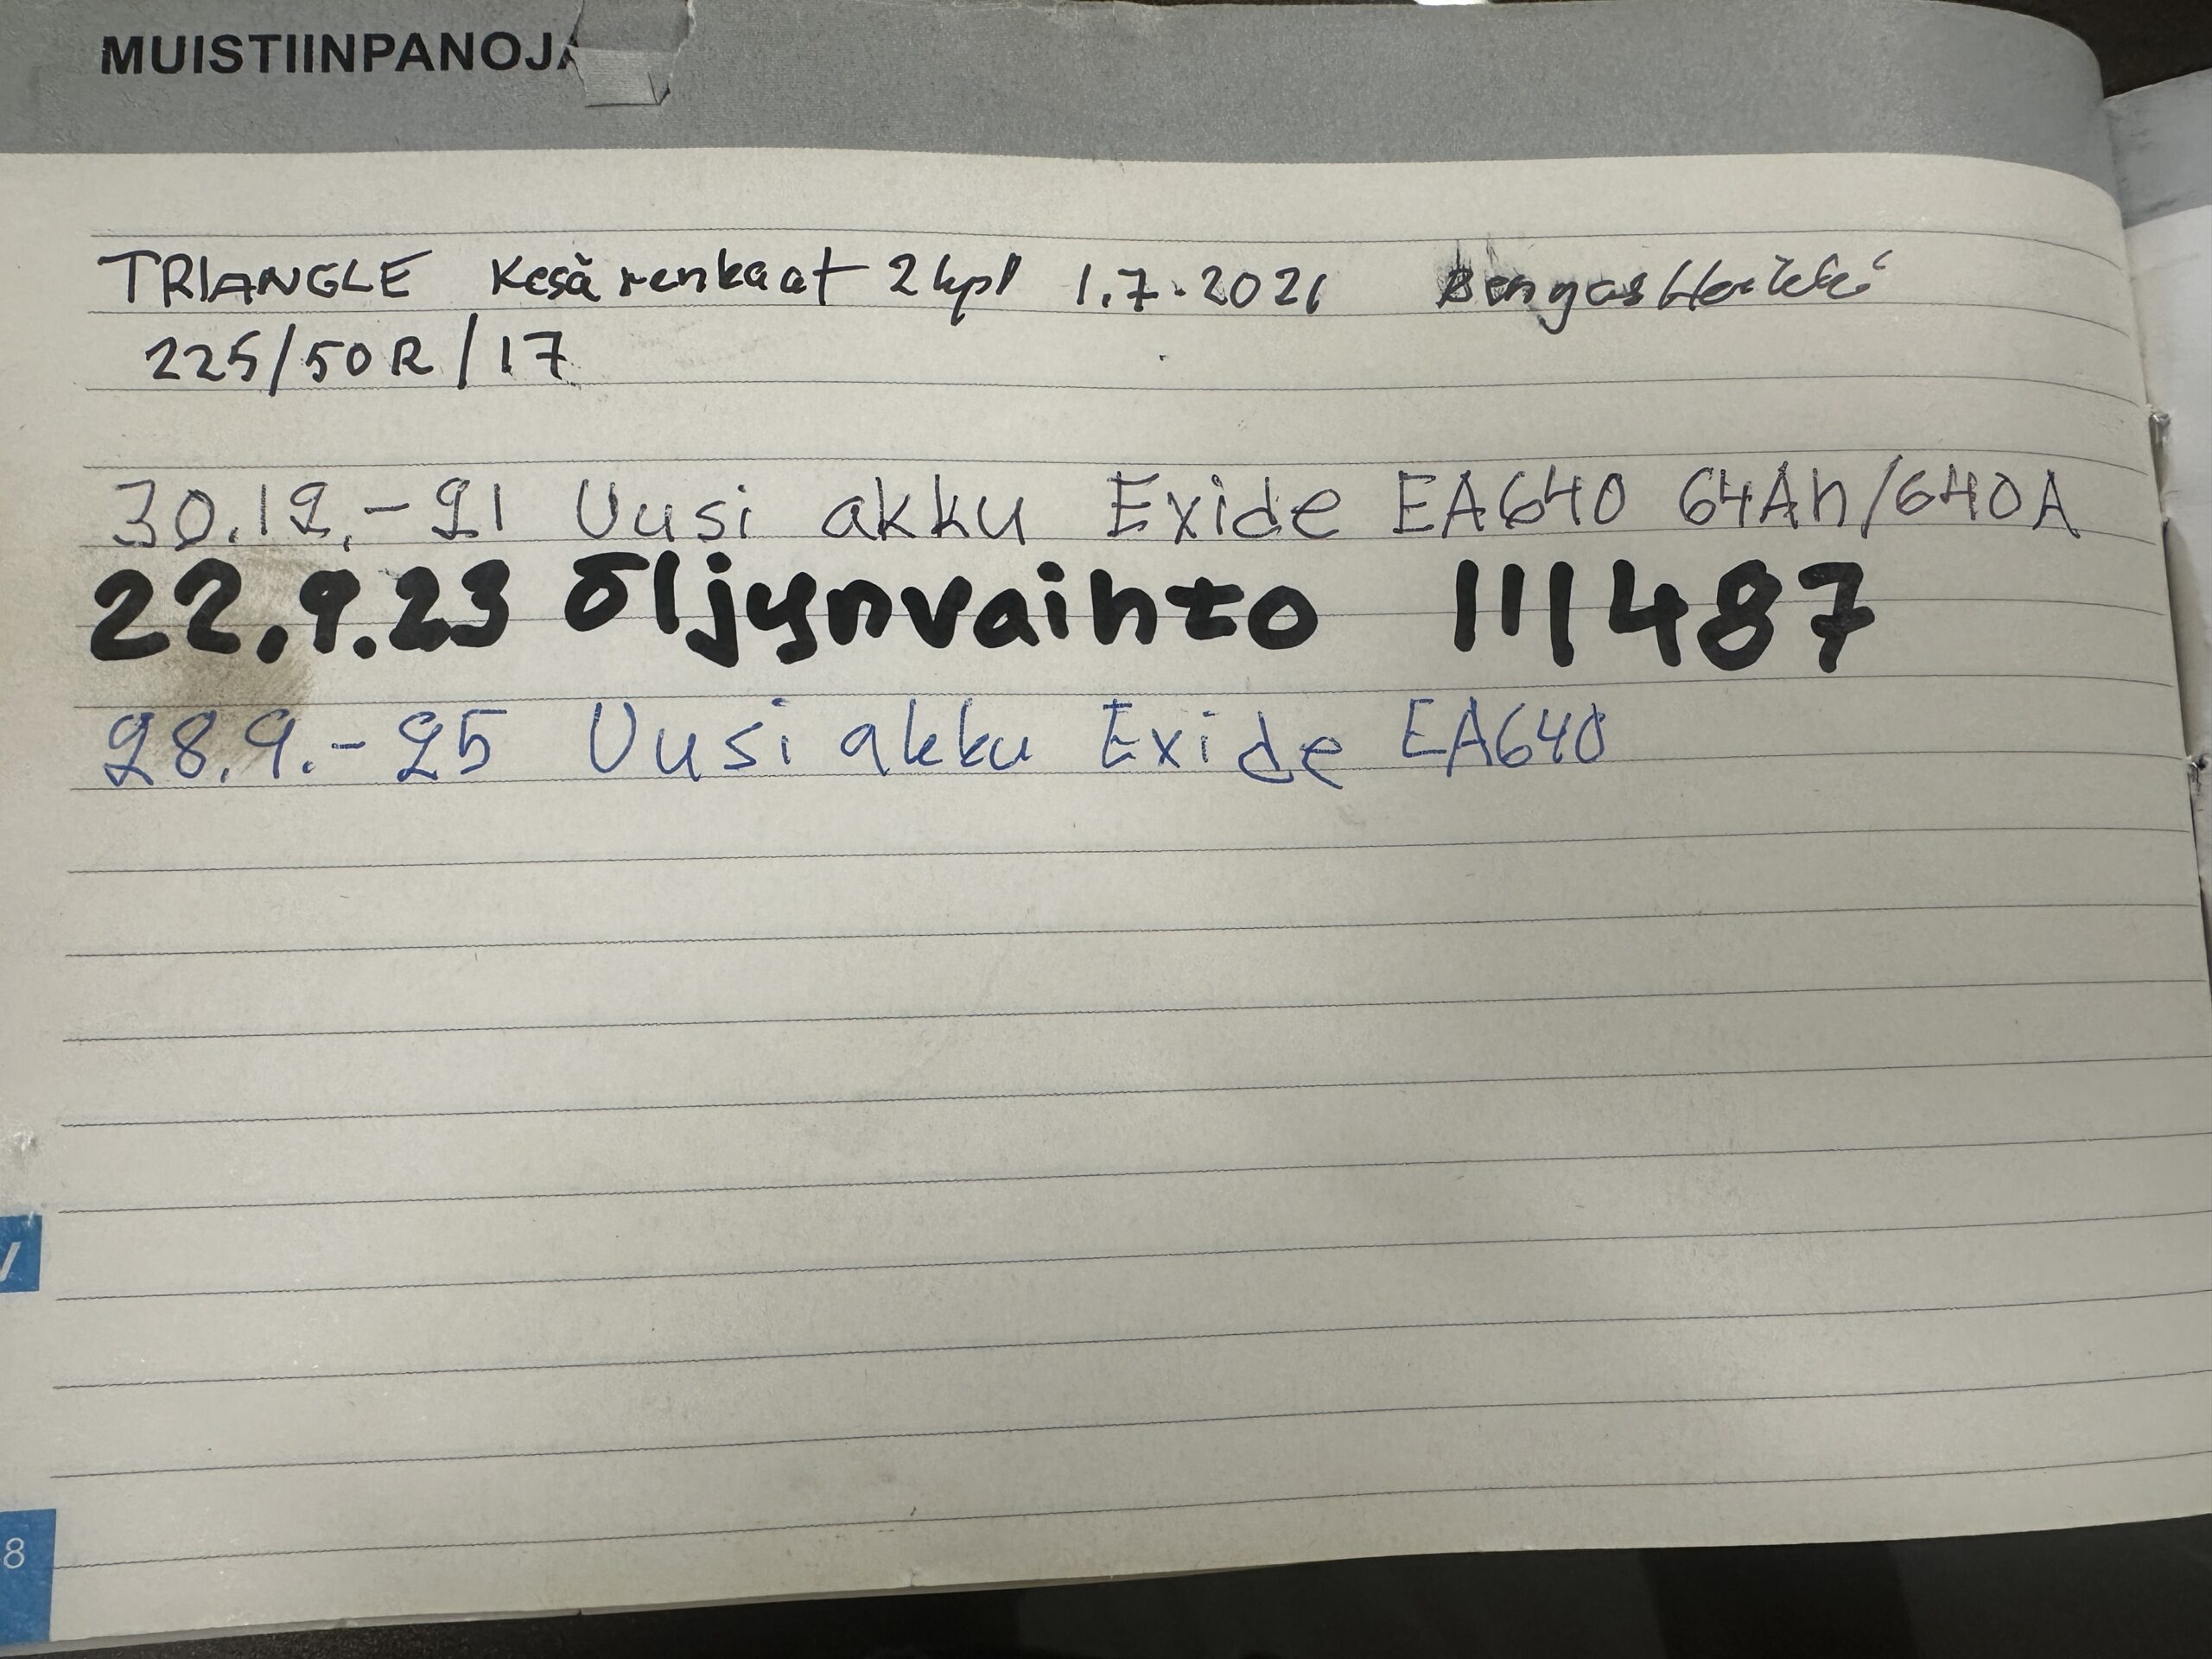 MUISTIINPANOJA
TRIANGLE Kesä renkaat 2 kpl 1.7.2021
225/50R/17
30.12.-21 Uusi akku Exide EA640 64Ah/640A
22.9.23 Öljynvaihto 111487
28.9.-25 Uusi akku Exide EA640
8